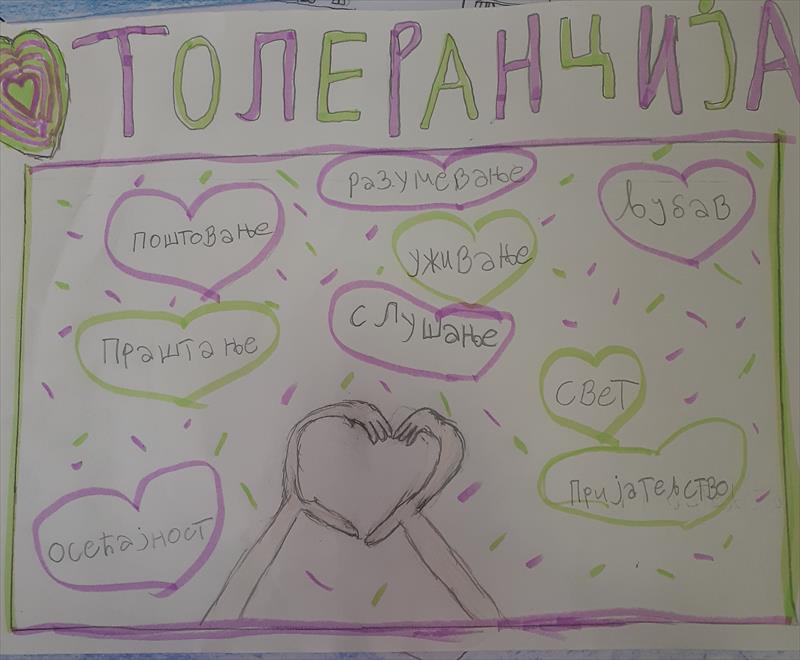 ТОЛЕРАНЦИЈА
разумевање
љубав
поштовање
уживање
слушање
праштање
свет
пријатељство
осећајност